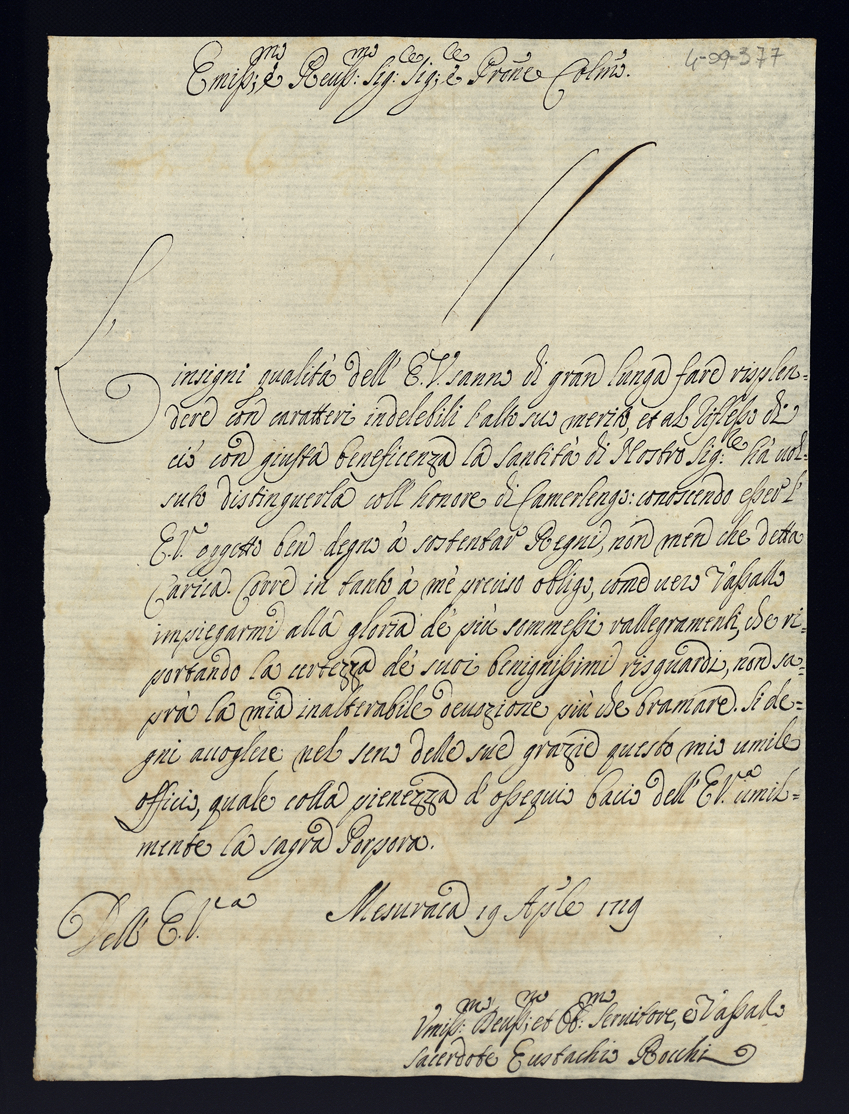 Emiss:mo è Reuss:mo Sig:re Sig:re è Prõne Colmõ.
4-09-377
L'insigni qualità dell' E. V. sanno di gran lunga fare risplen=
dere con caratteri indelebili l'alto suo merito, et al riflesso di
ciò con giusta beneficenza la Santità di Nostro Sig:re hà uol=
suto distinguerla coll'honore di Camerlengo: conoscendo esser l'
E. V. oggetto ben degno à sostentar Regni, non men che detta
Carica. Corre in tanto à mè preciso obligo, come uero Vassallo
impiegarmi alla gloria de più sommessi rallegramenti, che ri=
portando la certezza de suoi benignissimi risguardi, non sa=
prà la mia inalterabile deuozione più che bramare. Si de=
gni accogliere nel seno delle sue grazie questo mio umile
officio, quale colla pienezza d'ossequio bacio dell' E. V.a umil=
mente la sagra Porpora.
Dell' E. V.a
Mesuraca 19 Aprile 1719
Umiss:mo Deuss:mo et Ob:mo Seruitore, e Vassallo
Sacerdote Eustachio Rocchi